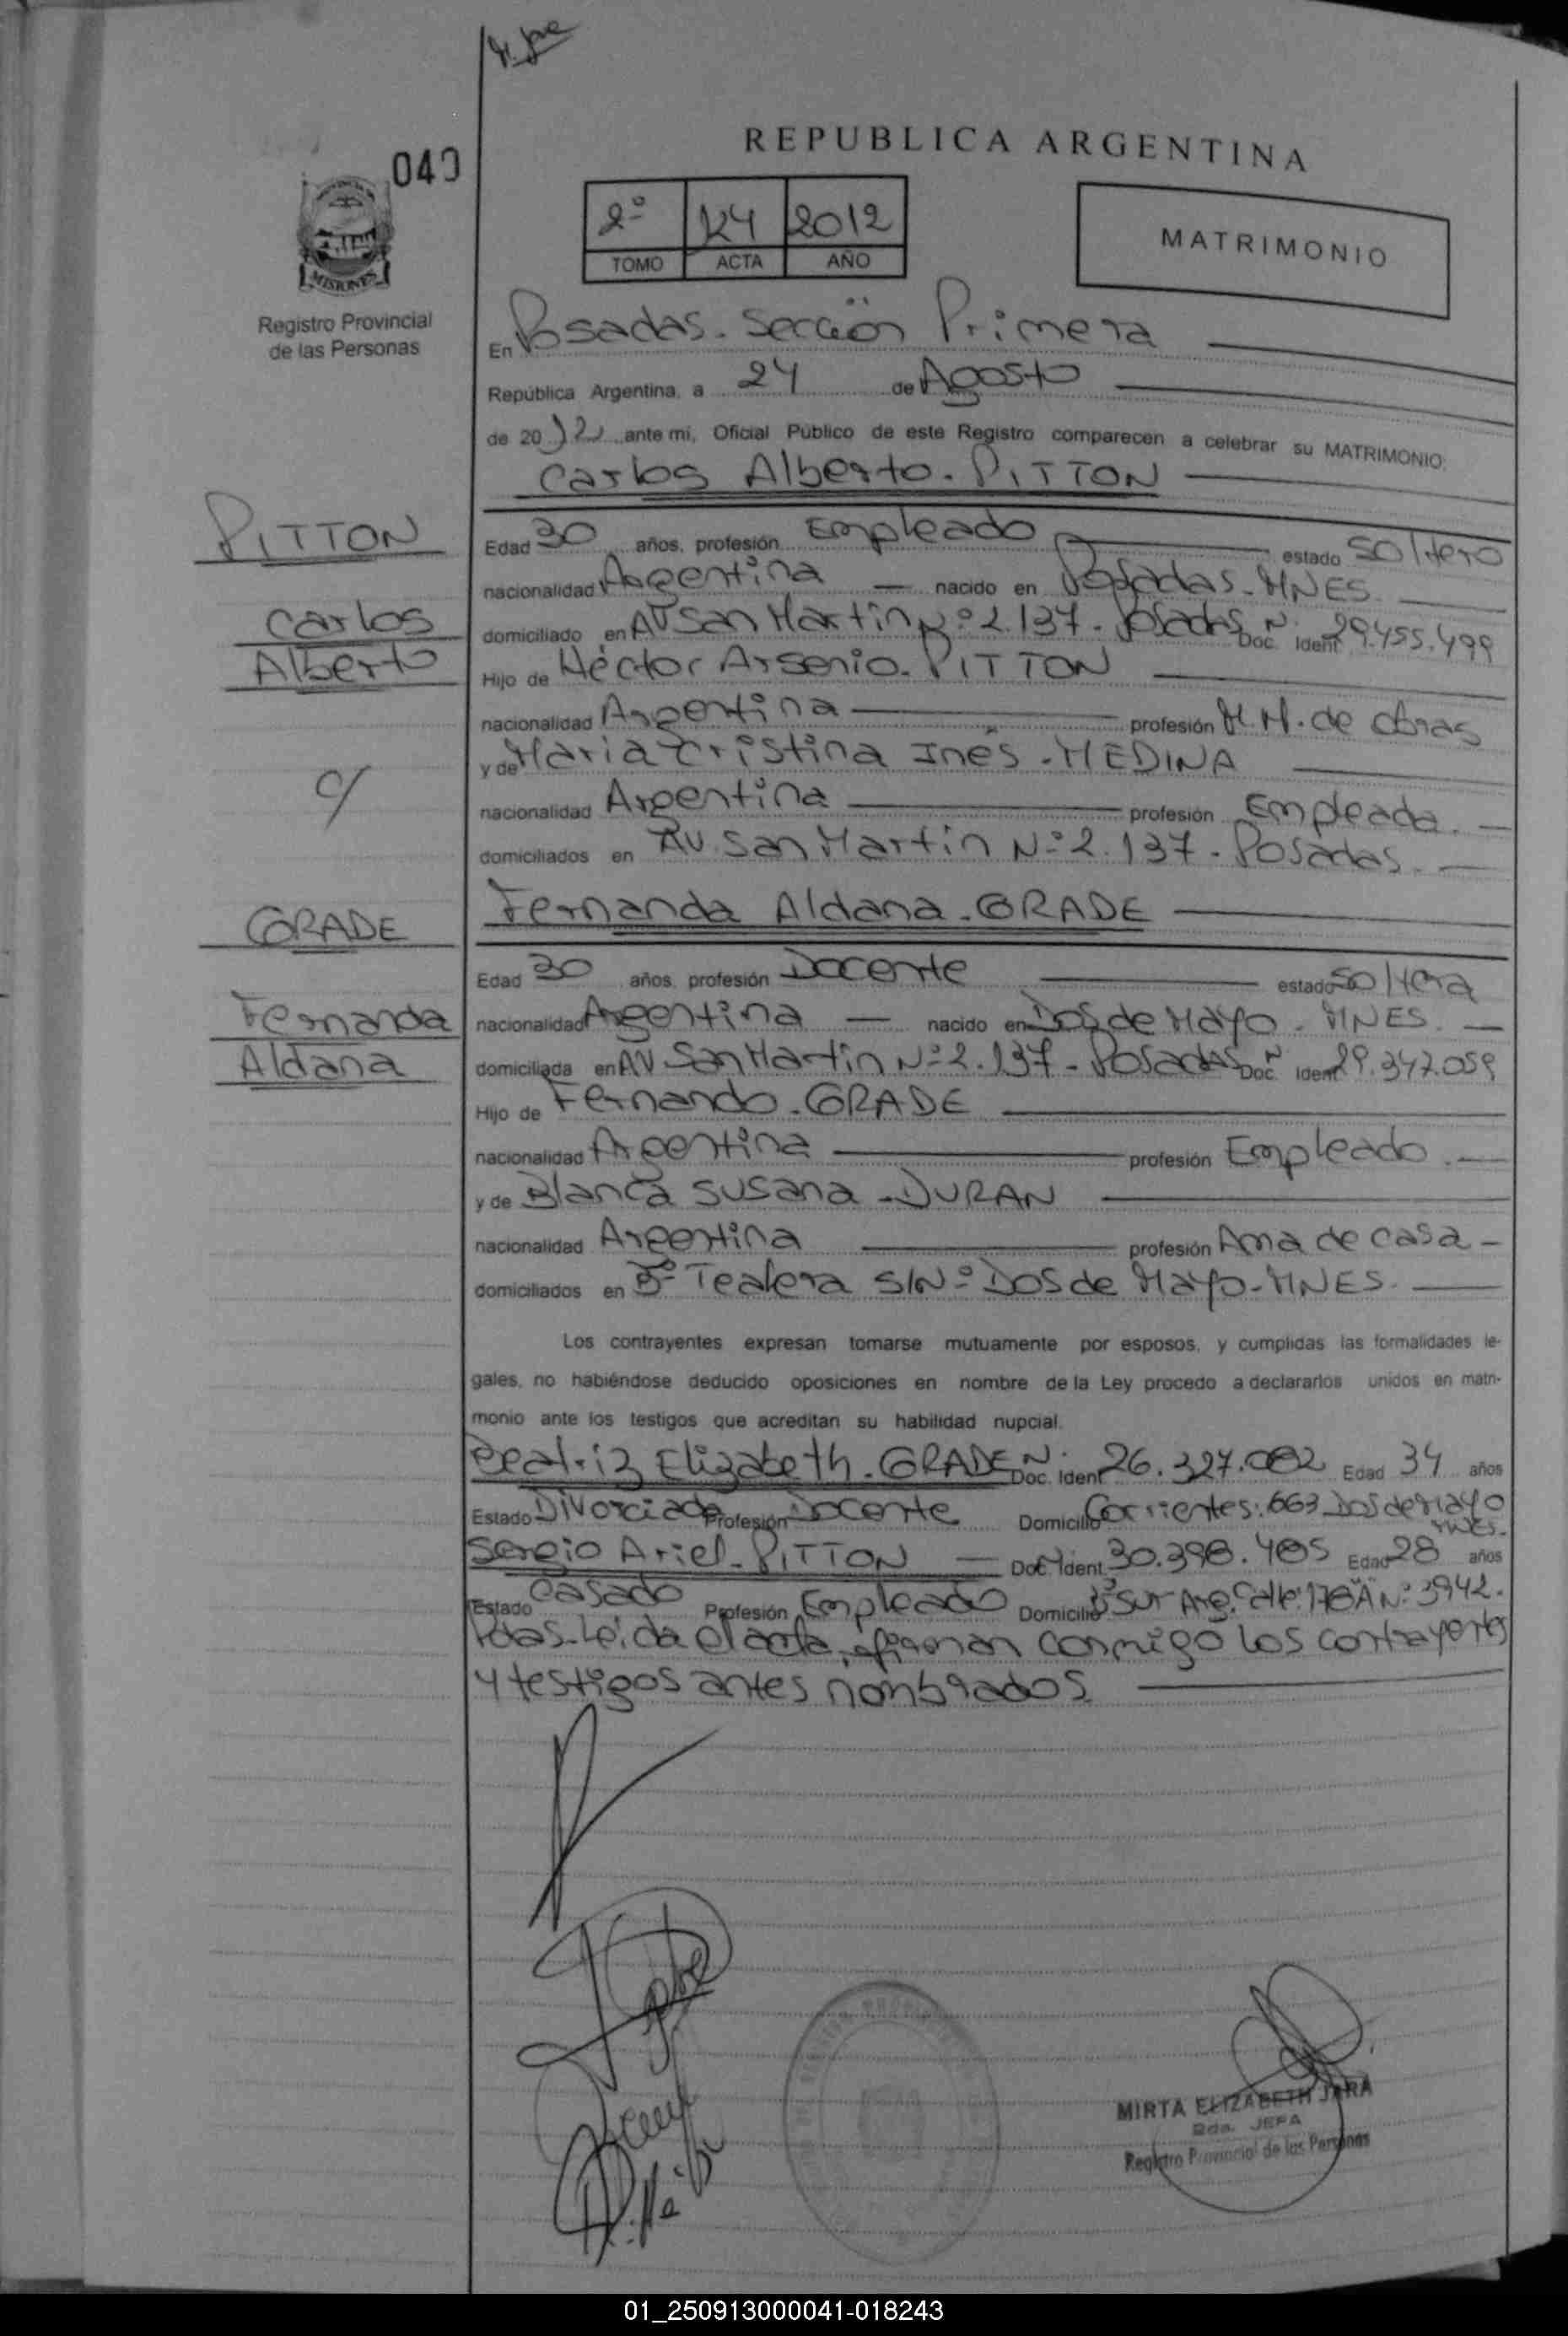 040
REPUBLICA ARGENTINA
2º 124 2012
TOMO ACTA AÑO
MATRIMONIO
MISIONES
Registro Provincial
de las Personas
En Posadas. Sección Primera
República Argentina, a 24 de Agosto
de 2012 ante mi, Oficial Público de este Registro comparecen a celebrar su MATRIMONIO:
Carlos Alberto. PITTON
PITTON
Carlos
Alberto
Edad 30 años, profesión Empleado estado soltero
nacionalidad Argentina nacido en Posadas-MNES.
domiciliado en AV San Martín Nº 2.137. Posadas Doc. Ident. Nº 29.455.499
Hijo de Héctor Arsenio. PITTON
nacionalidad Argentina profesión M.M. de obras
y de María Cristina Inés. MEDINA
c/
nacionalidad Argentina profesión Empleada.
domiciliados en AV. San Martín Nº 2.137. Posadas.
Fernanda Aldana. GRADE
GRADE
Fernanda
Aldana
Edad 30 años, profesión Docente estado soltera
nacionalidad Argentina nacido en Dos de Mayo. MNES.
domiciliada en AV San Martín Nº 2.137. Posadas Doc. Ident. Nº 29.347.059
Hijo de Fernando. GRADE
nacionalidad Argentina profesión Empleado.
y de Blanca Susana. DURAN
nacionalidad Argentina profesión Ama de casa
domiciliados en Bº Tealera S/Nº Dos de Mayo-MNES.
Los contrayentes expresan tomarse mutuamente por esposos, y cumplidas las formalidades le-
gales, no habiéndose deducido oposiciones en nombre de la Ley procedo a declararlos unidos en matri-
monio ante los testigos que acreditan su habilidad nupcial.
Beatriz Elizabeth. GRADE Doc. Ident. Nº 26.327.082 Edad 34 años
Estado Divorciada Profesión Docente Domicilio Corrientes: 663 Dos de Mayo MNES.
Sergio Ariel. PITTON Doc. Ident. Nº 30.398.485 Edad 28 años
Estado Casado Profesión Empleado Domicilio Bº Sur Arg. Calle: 178 "A" Nº: 3942.
Pdas. Leída el acta, firman conmigo los contrayentes
y testigos antes nombrados.
MIRTA ELIZABETH JARA
2da. JEFA
Registro Provincial de las Personas
01_250913000041-018243